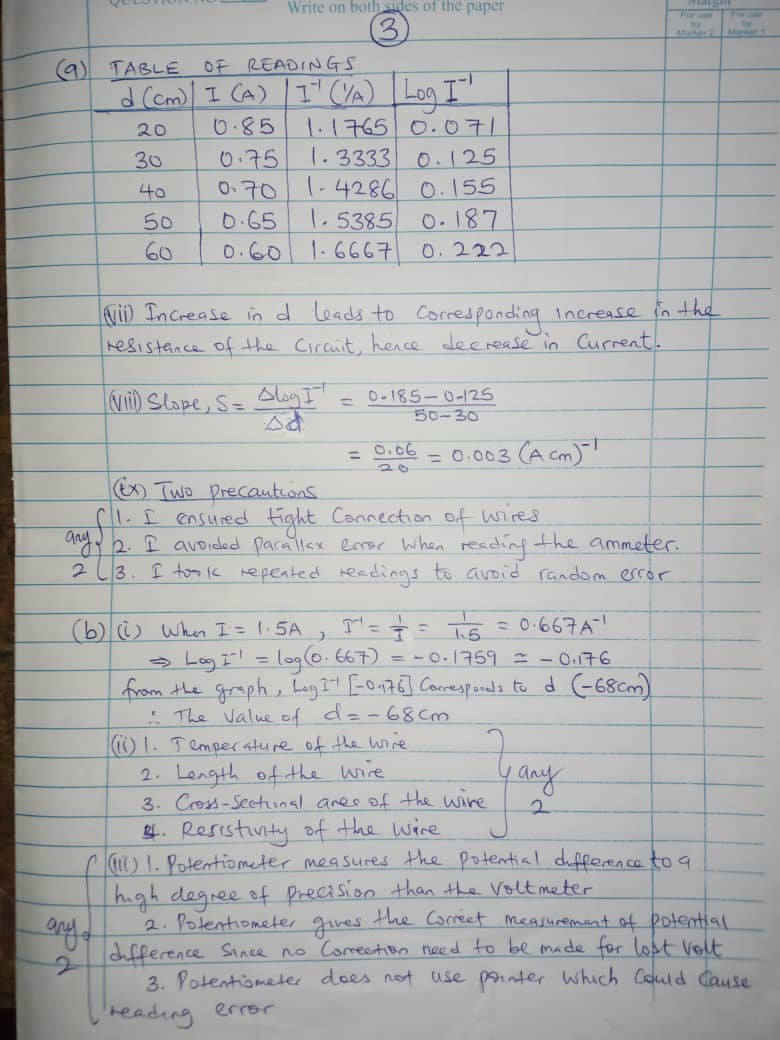 Write on both sides of the paper
Margin
For use by Marker 2
For use by Marker 1
3
(a) TABLE OF READINGS
d (cm) | I (A) | I⁻¹ (1/A) | Log I⁻¹
20 0.85 1.1765 0.071
30 0.75 1.3333 0.125
40 0.70 1.4286 0.155
50 0.65 1.5385 0.187
60 0.60 1.6667 0.222
(vii) Increase in d leads to corresponding increase in the
resistance of the circuit, hence decrease in current.
(viii) Slope, S = ΔlogI⁻¹/Δd = 0.185-0.125/50-30
= 0.06/20 = 0.003 (A cm)⁻¹
(ix) Two precautions
1. I ensured tight connection of wires
any 2. I avoided parallax error when reading the ammeter.
2 3. I took repeated readings to avoid random error
(b) (i) When I = 1.5A, I⁻¹ = 1/I = 1/1.5 = 0.667A⁻¹
⇒ Log I⁻¹ = log(0.667) = -0.1759 ≃ -0.176
from the graph, Log I⁻¹ [-0.176] corresponds to d (-68cm)
∴ The value of d = -68cm
(ii) 1. Temperature of the wire
2. Length of the wire any
3. Cross-Sectional area of the wire 2
4. Resistivity of the wire
(iii) 1. Potentiometer measures the potential difference to a
high degree of precision than the voltmeter
any 2. Potentiometer gives the correct measurement of potential
2 difference since no correction need to be made for lost volt
3. Potentiometer does not use pointer which could cause
reading error